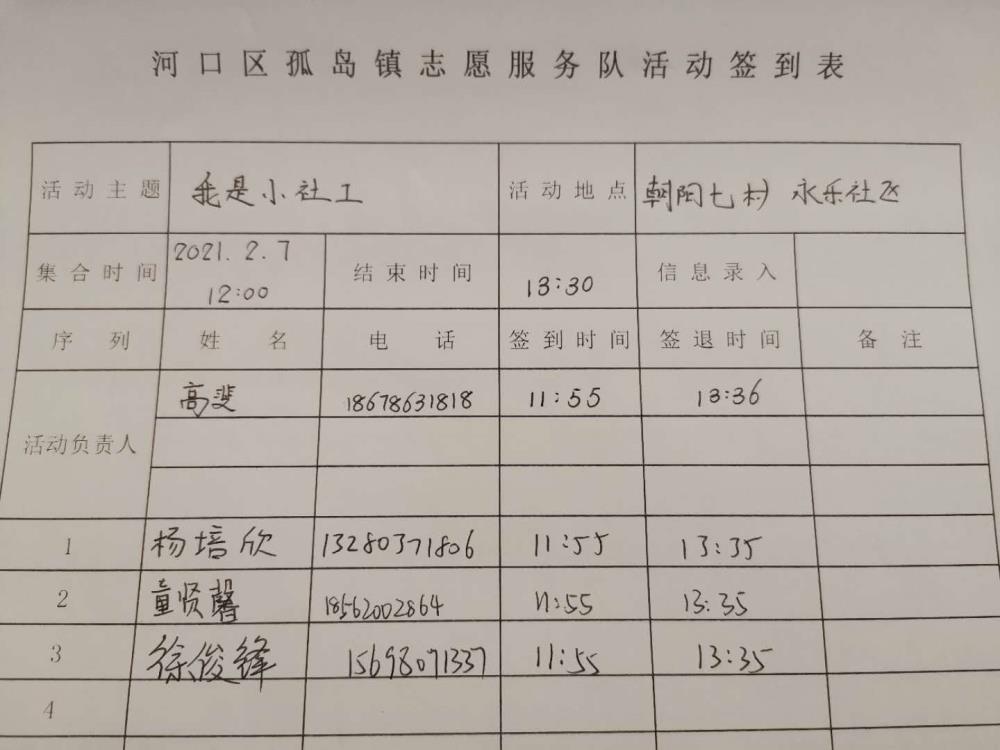 河口区孤岛镇志愿服务队活动签到表
活动主题 我是小社工 活动地点 朝阳七村 永乐社区
集合时间 2021.2.7 12:00 结束时间 13:30 信息录入
序列 姓名 电话 签到时间 签退时间 备注
活动负责人 高斐 18678631818 11:55 13:36
1 杨培欣 13280371806 11:55 13:35
2 童贤馨 18562002864 11:55 13:35
3 徐俊锋 15698071337 11:55 13:35
4